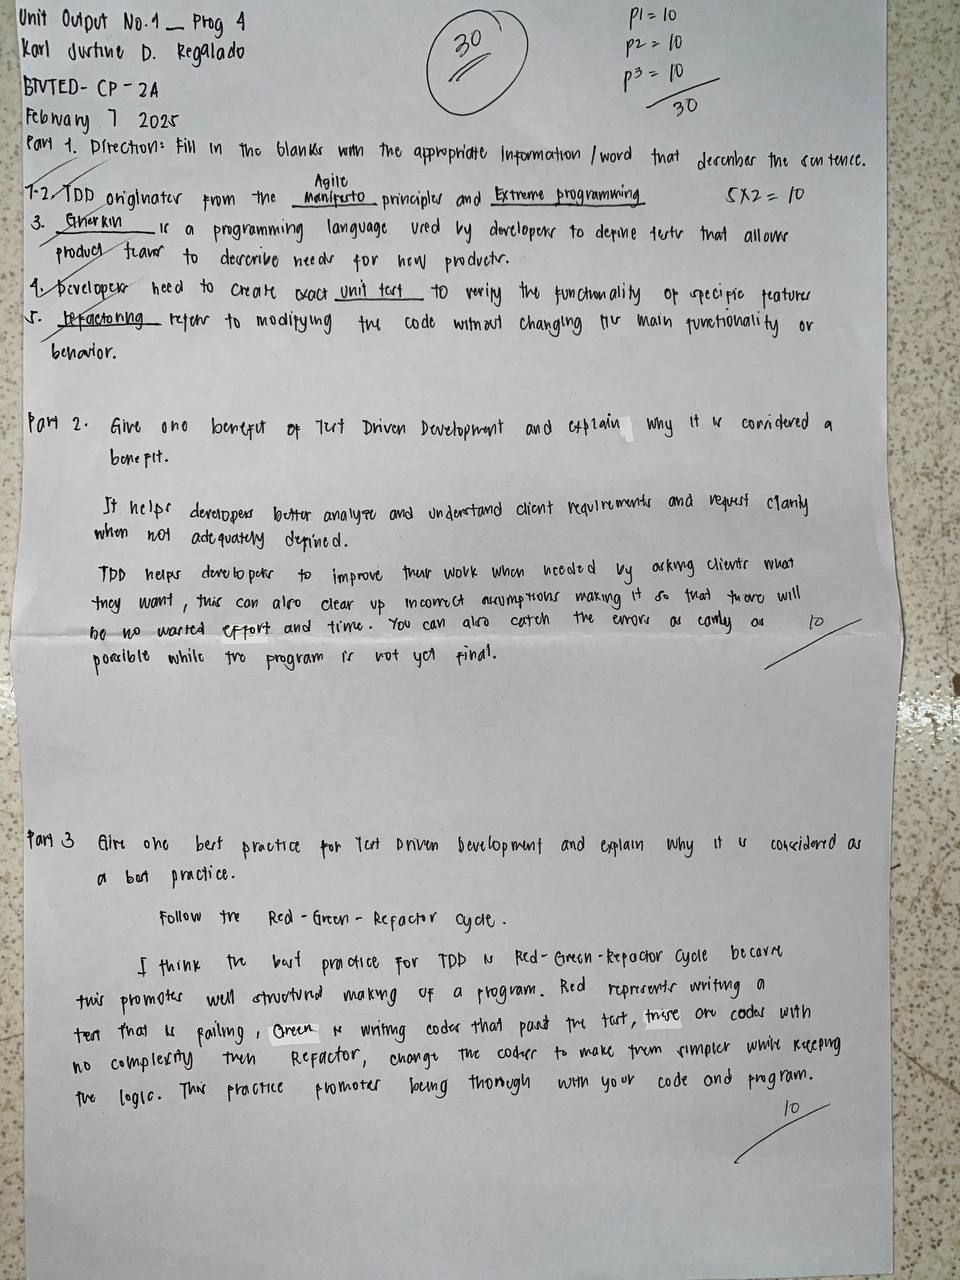 Unit Output No.1 _ Prog 4
Karl Justine D. Regalado
BTVTED- CP - 2A
February 7 2025
30
P1 = 10
P2 = 10
P3 = 10
30
Part 1. Direction: Fill in the blanks with the appropriate information / word that describes the sentence.
1-2. TDD originates from the Agile Manifesto principles and Extreme programming
5x2 = 10
3. Gherkin is a programming language used by developers to define tests that allows
product teams to describe needs for new products.
4. Developers need to create exact unit test to verify the functionality of specific features
5. refactoring refers to modifying the code without changing its main functionality or
behavior.
Part 2. Give one benefit of Test Driven Development and explain why it is considered a
benefit.
It helps developers better analyze and understand client requirements and request clarity
when not adequately defined.
TDD helps developers to improve their work when needed by asking clients what
they want, this can also clear up incorrect assumptions making it so that there will
be no wasted effort and time. You can also catch the errors as early as
possible while the program is not yet final.
10
Part 3 Give one best practice for Test Driven Development and explain why it is considered as
a best practice.
Follow the Red - Green - Refactor cycle.
I think the best practice for TDD is Red-Green-Refactor Cycle because
this promotes well structured making of a program. Red represents writing a
test that is failing, Green is writing codes that pass the test, these are codes with
no complexity then Refactor, change the codes to make them simpler while keeping
the logic. This practice promotes being thorough with your code and program.
10